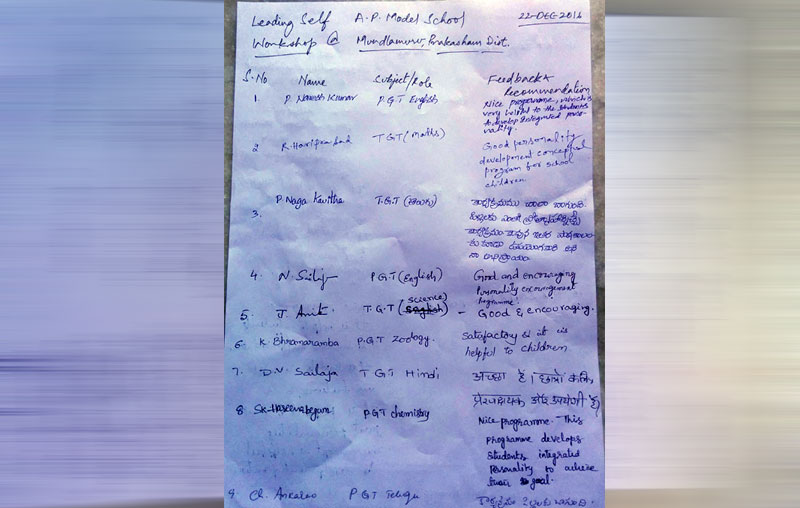 Leading Self A.P. Model School 22-DEC-2014
Workshop @ Mundlamuru, Prakasham Dist.
S.No Name Subject/Role Feedback &
Recommendation
1. P. Naresh Kumar PGT English Nice programme, which is
very helpful to the students
to develop Integrated perso-
nality.
2 K. Hariprasad TGT (Maths) Good personality
development conceptual
program for school
children
3. P. Naga Kavitha T.G.T (తెలుగు) కార్యక్రమము చాలా బాగుంది.
4. N. PGT (English) Good and encouraging
Personality encouragement
Programme.
5. J. T.G.T (science) - Good & encouraging.
6. K. Bhramaramba P.G.T Zoology. Satisfactory & it is
helpful to children
7. D.V. Sailaja T G T Hindi अच्छा है। छात्रों के लिए
और उपयोगी है।
8 SK. PGT chemistry Nice programme. This
programme develops
students, integrated
Personality to achieve
their goal.
9. Ch. PGT Telugu